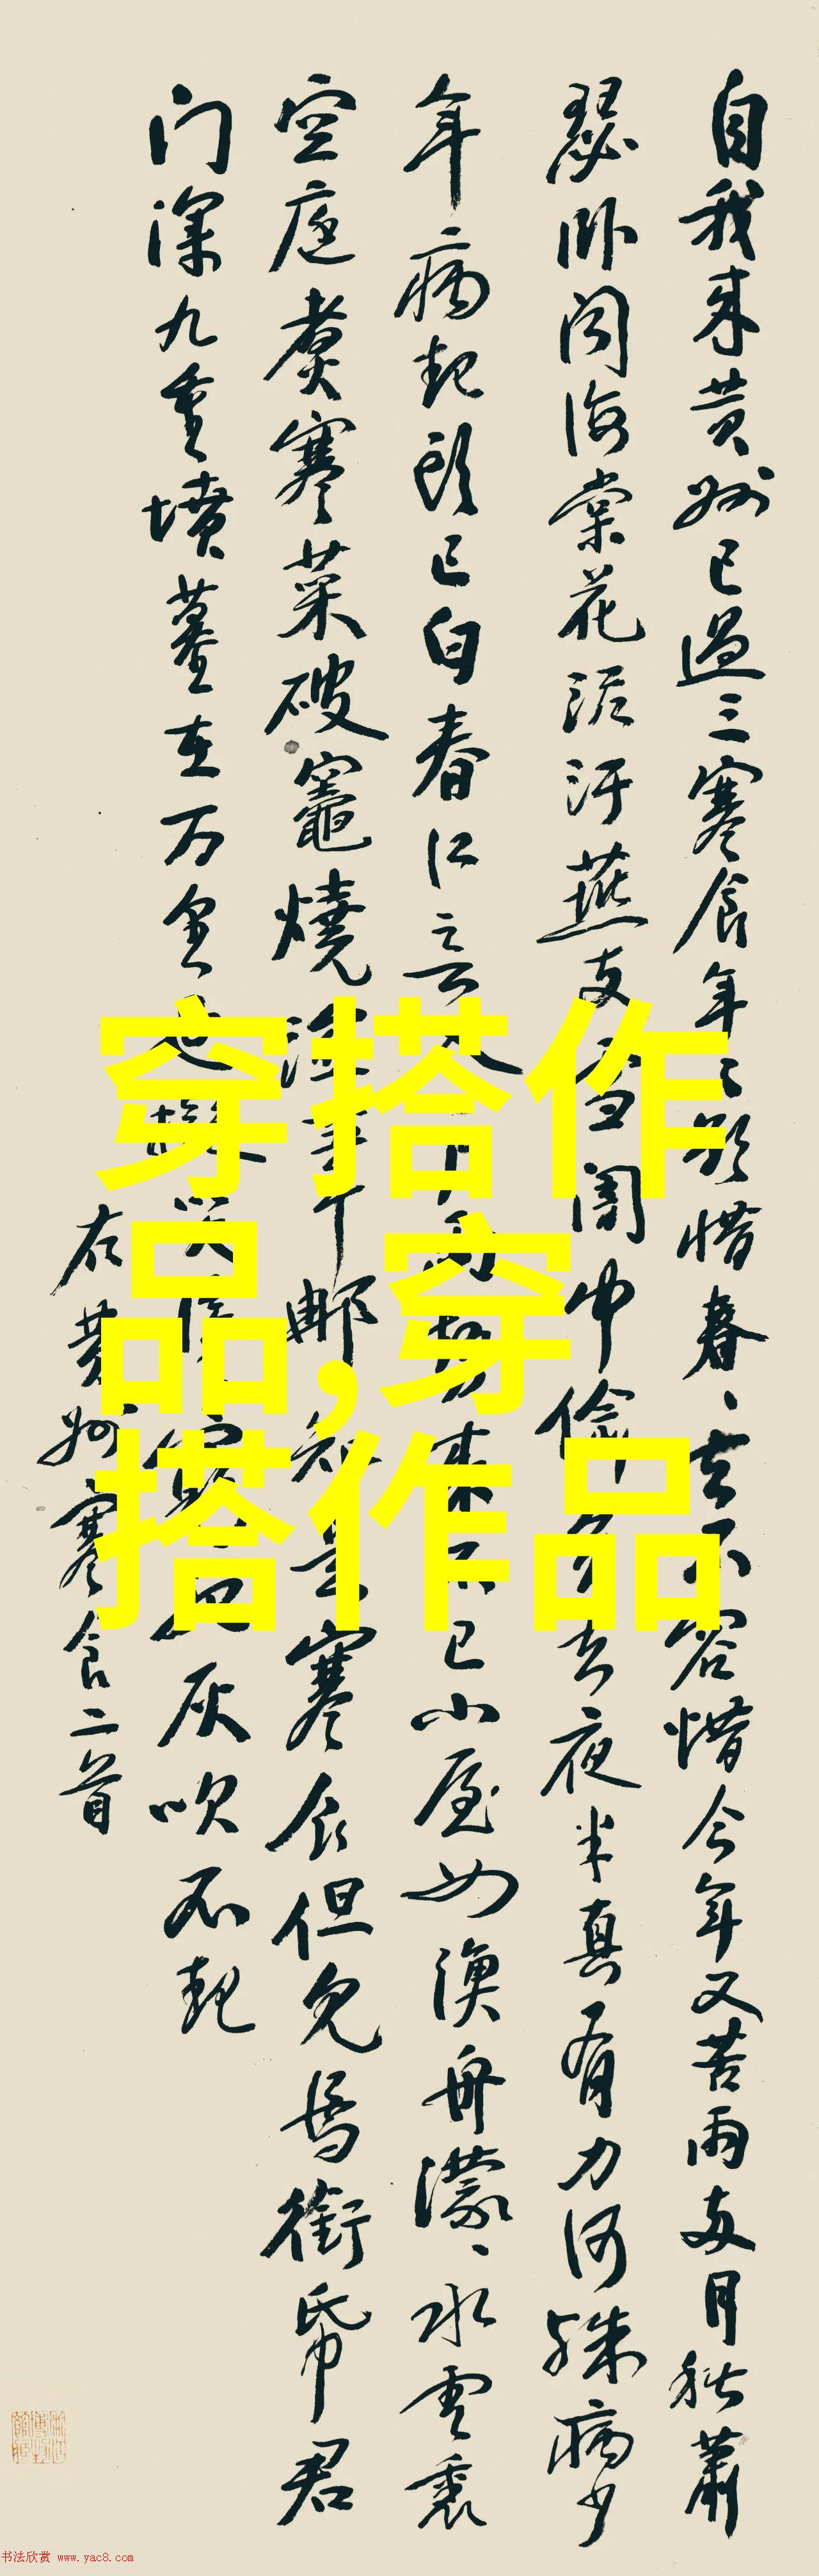 自我来黄州已過三寒食年〻欲惜春〻去不容惜今年又苦雨两月秋蕭
瑟卧闻海棠花泥汙燕支雪闇中偷負去夜半真有力何殊病少
年病起頭已白春江入雨勢来不已小屋如漁舟濛〻水雲裏
空庖煮寒菜破竈燒湿苇下那知是寒食但見烏銜帋君
门深九重墳墓在万里也擬哭塗窮死灰吹不起
右黄州寒食二首
穿搭作
品,穿
搭作品
书法欣赏 www.yac8.com